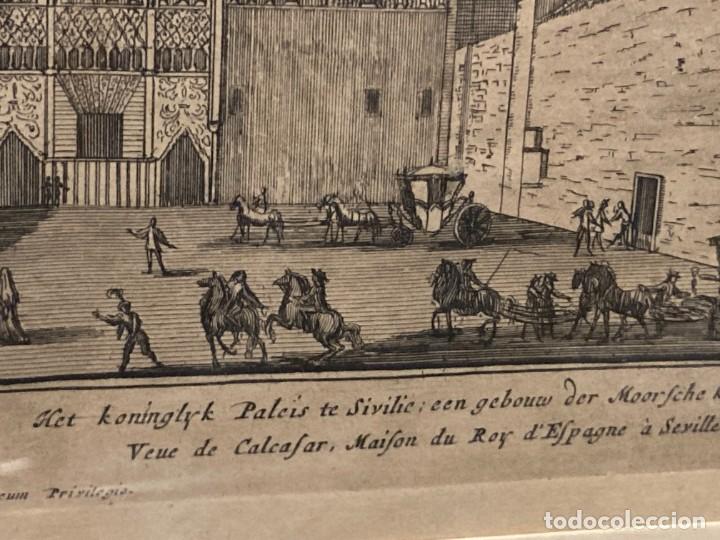 Het koninglyk Paleis te Sivilie; een gebouw der Moorsche
Veue de Calcasar, Maison du Roy d'Espagne à Seville
cum Privilegio.
todocoleccion.net